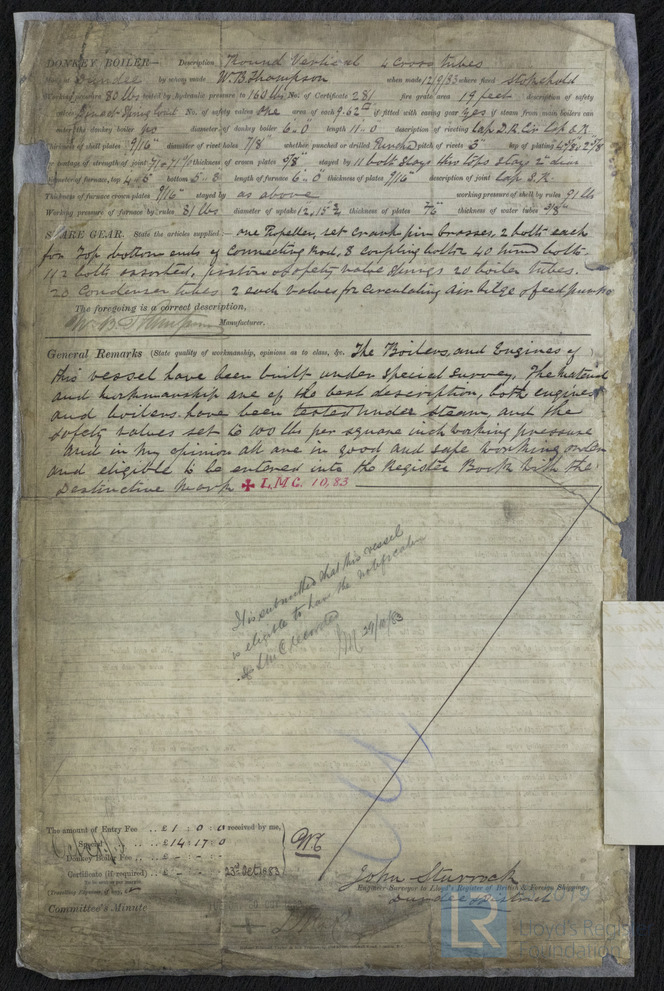 DONKEY BOILER— Description Round Vertical 4 Cross tubes
Made at Dundee by whom made W. B. Thompson when made 12/9/83 where fixed Stokehold
Working pressure 80 lbs tested by hydraulic pressure to 160 lbs No. of Certificate 281 fire grate area 19 feet description of safety
valves Direct Spring load No. of safety valves One area of each 9.62" if fitted with easing gear Yes if steam from main boilers can
enter the donkey boiler No diameter of donkey boiler 6-0 length 11-0 description of riveting Lap D.R. Cir Lap S.R.
Thickness of shell plates 9/16" diameter of rivet holes 7/8" whether punched or drilled Punched pitch of rivets lap of plating
per centage of strength of joint thickness of crown plates 9/8" stayed by 11 bolt stays this tops stays 2" diam
Diameter of furnace, top bottom 5-3 length of furnace 6-0 thickness of plates 7/16" description of joint Lap S.R.
Thickness of furnace crown plates 9/16" stayed by as above working pressure of shell by rules 91 lbs
Working pressure of furnace by rules 81 lbs diameter of uptake thickness of plates thickness of water tubes 3/8"
SPARE GEAR. State the articles supplied:— one Propeller, set Crank pin brasses, 2 bolts each
for Top & bottom ends of Connecting Rod, 8 coupling bolts 40 bolts
bolts assorted, piston & safety valve Springs 20 boiler tubes.
20 Condenser tubes 2 each valves for Circulating Air bilge & feed pumps
The foregoing is a correct description,
W. B. Thompson Manufacturer.
General Remarks (State quality of workmanship, opinions as to class, &c. The Boilers, and Engines of )
this vessel have been built under Special Survey, The material
and workmanship are of the best description, both engines
and boilers have been tested under steam, and the
safety valves set to 100 lbs per square inch working pressure
and in my opinion all are in good and safe working order
and eligible to be entered into the Register Book with the
Destinctive Mark ✠ L.M.C. 10,83
It is submitted that this vessel
is eligible to have the notification
✠ LMC recorded
29/10/83
The amount of Entry Fee .. £ 1 : 0 : 0 received by me,
Special .. £ 14 : 17 : 0
Donkey Boiler Fee .. £ - : - :
Certificate (if required) .. £ - : - : 23rd Oct 1883
(Travelling Expenses, if any, £ )
John Sturrock
Engineer-Surveyor to Lloyd's Register of British & Foreign Shipping.
Dundee District
Committee's Minute
LR
Lloyd's Register
Foundation